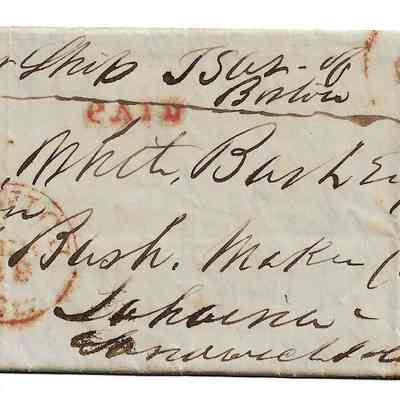 Ship Isar of
Boston
PAID
White, Bush Es
Bush. Maker
Lahaina
Sandwich Isl